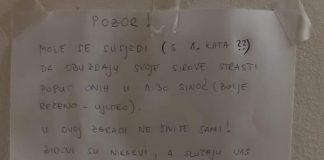 POZOR!
MOLE SE SUSJEDI (S 1. KATA ??)
DA OBUZDAJU SVOJE SIROVE STRASTI
POPUT ONIH U 1:30 SINOĆ (BOLJE
REČENO - UJUTRO).
U OVOJ ZGRADI NE ŽIVITE SAMI!
ZIDOVI SU NIKAKVI, A SLUŠAJU VAS